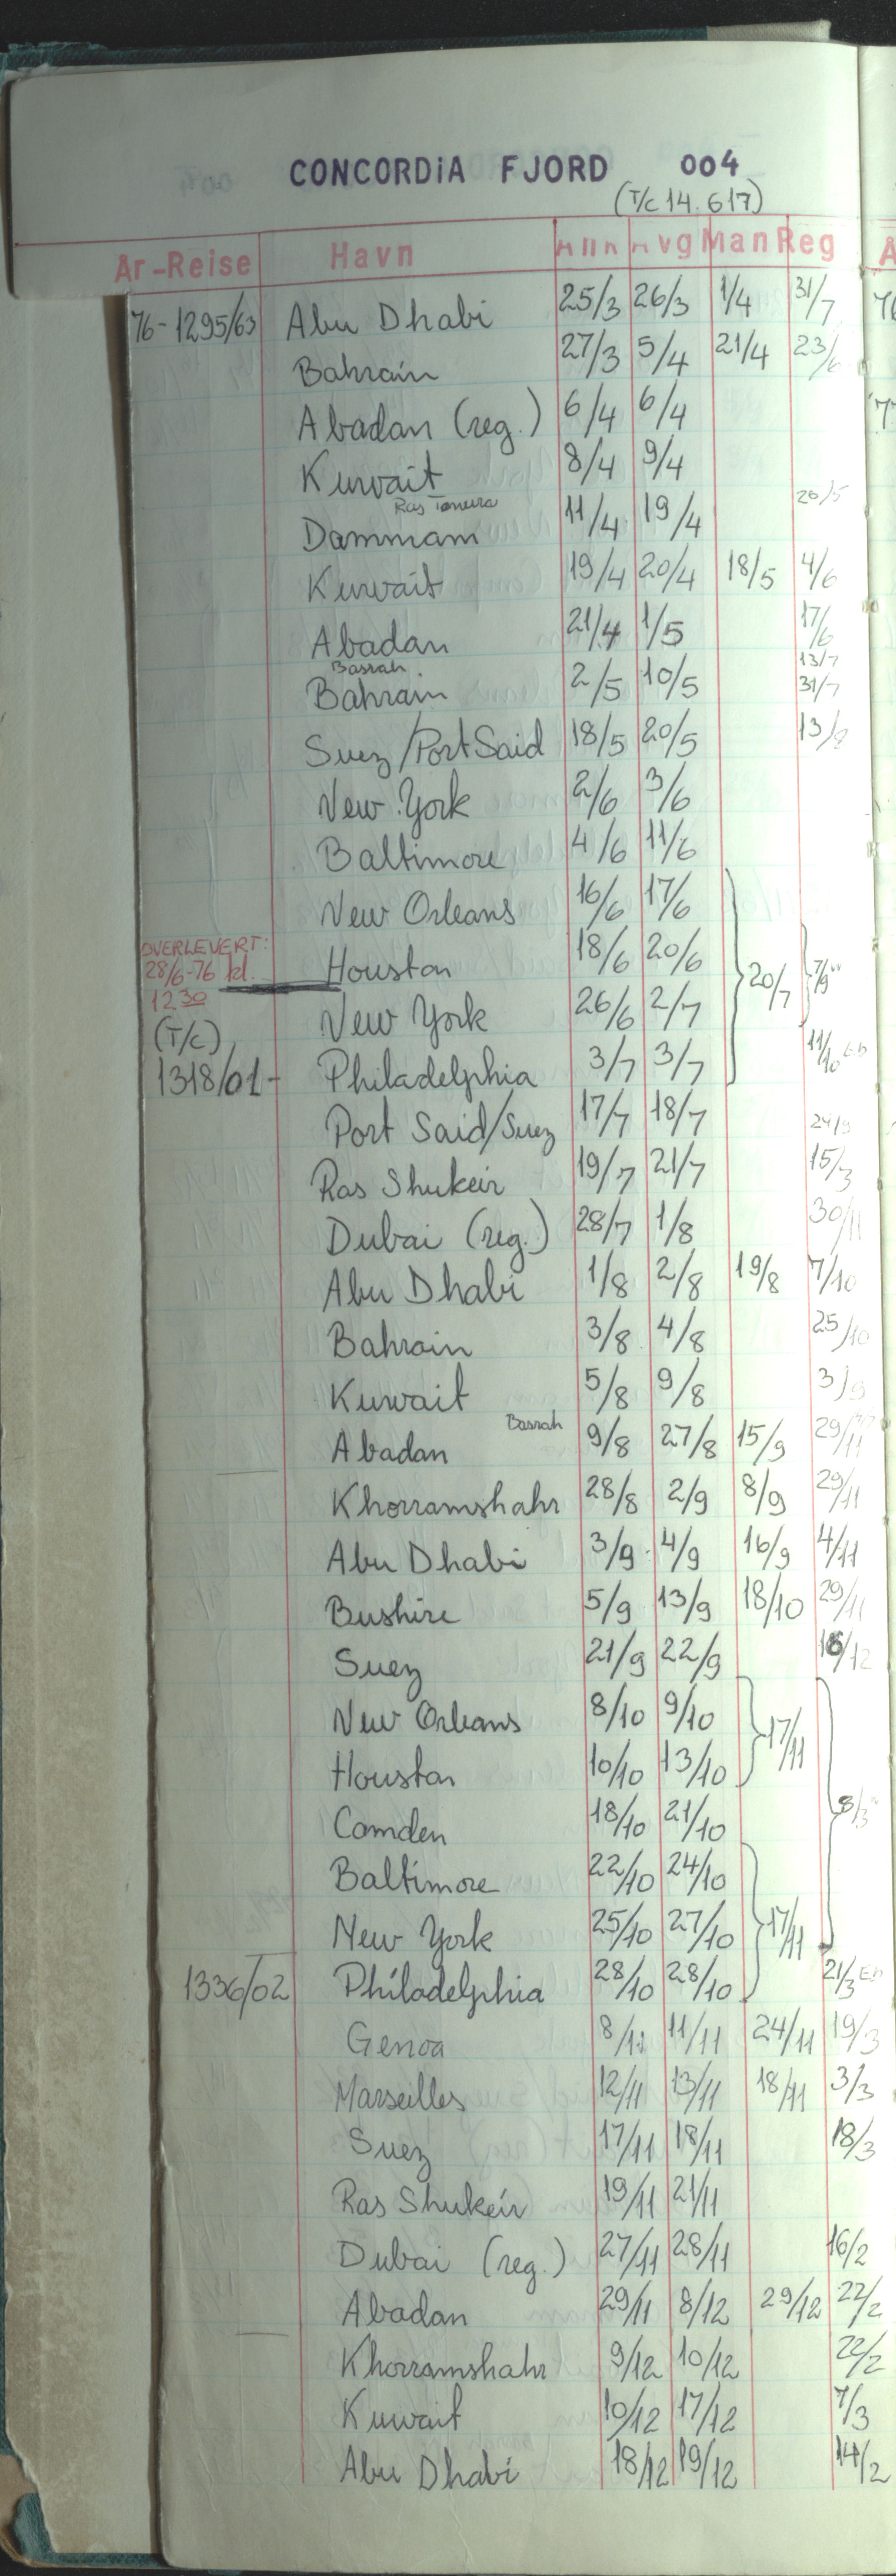 CONCORDIA FJORD 004
(T/C 14.617)
År-Reise Havn Ank Avg Man Reg
76-1295/63 Abu Dhabi 25/3 26/3 1/4 31/7
Bahrain 27/3 5/4 21/4 23/6
Abadan (reg.) 6/4 6/4
Kuwait 8/4 9/4
Ras Tanura 20/5
Dammam 11/4 19/4
Kuwait 19/4 20/4 18/5 4/6
Abadan 21/4 1/5 17/6
Basrah 13/7
Bahrain 2/5 10/5 31/7
Suez/Port Said 18/5 20/5
New York 2/6 3/6
Baltimore 4/6 11/6
New Orleans 16/6 17/6
OVERLEVERT:
28/6-76 kl. Houston 18/6 20/6 20/7 7/9
12 30
(T/C) New York 26/6 2/7
1318/01- Philadelphia 3/7 3/7 11/10
Port Said/Suez 17/7 18/7
Ras Shukeir 19/7 21/7 15/3
Dubai (reg.) 28/7 1/8 30/11
Abu Dhabi 1/8 2/8 19/8 7/10
Bahrain 3/8 4/8 25/10
Kuwait 5/8 9/8 3/9
Basrah
Abadan 9/8 27/8 15/9 29/11
Khorramshahr 28/8 2/9 8/9 29/11
Abu Dhabi 3/9 4/9 16/9 4/11
Bushire 5/9 13/9 18/10 29/11
Suez 21/9 22/9 16/12
New Orleans 8/10 9/10 17/11
Houston 10/10 13/10
Camden 18/10 21/10 8/3
Baltimore 22/10 24/10
New York 25/10 27/10 17/11
1336/02 Philadelphia 28/10 28/10 21/3
Genoa 8/11 11/11 24/11 19/3
Marseilles 12/11 13/11 18/11 3/3
Suez 17/11 18/11 18/3
Ras Shukeir 19/11 21/11
Dubai (reg.) 27/11 28/11 16/2
Abadan 29/11 8/12 29/12 22/2
Khorramshahr 9/12 10/12 22/2
Kuwait 10/12 17/12 7/3
Abu Dhabi 18/12 19/12 14/2